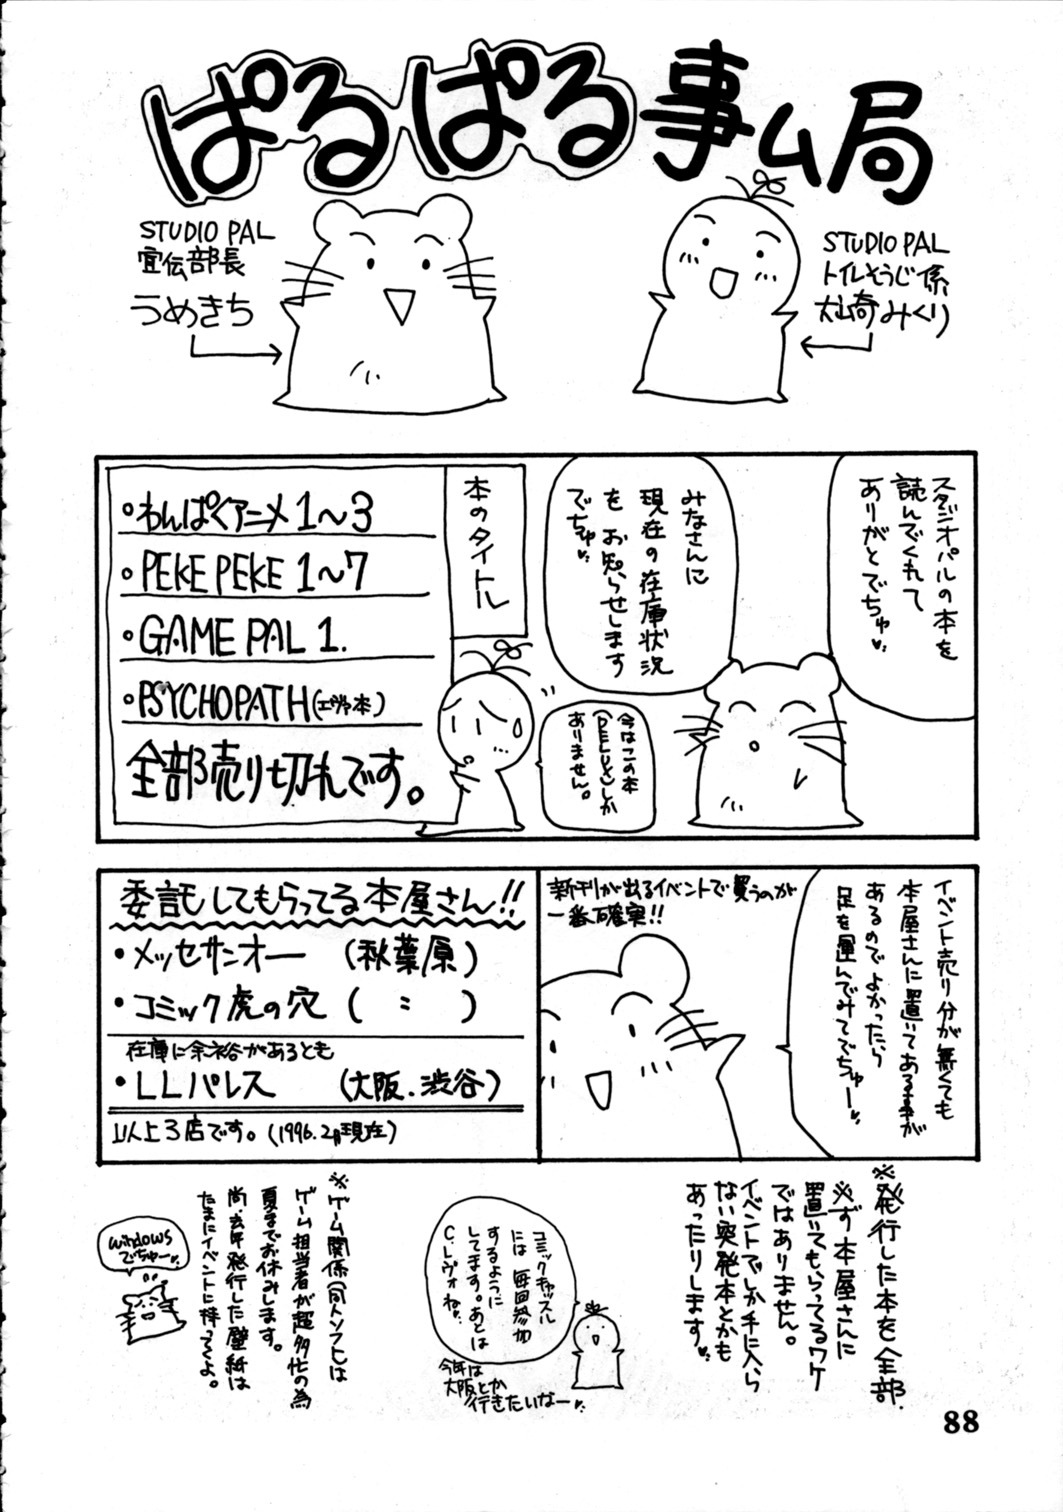 ぱるぱる事ム局
STUDIO PAL
宣伝部長
うめきち
STUDIO PAL
トイレそうじ係
犬山奇みくり
スタジオパルの本を
読んでくれて
ありがとでちゅ
みなさんに
現在の在庫状況
を お知らせします
でちゅ
本のタイトル
・わんぱくアニメ1〜3
・PEKE PEKE 1〜7
・GAME PAL 1.
・PSYCHOPATH(エヴァ本)
全部売り切れです。
今はこの本
しか
ありません。
イベント売り分が無くても
本屋さんに置いてある事が
あるのでよかったら
足を運んでみてでちゅー
新刊が出るイベントで買うのが
一番確実!!
委託してもらってる本屋さん!!
・メッセサンオー (秋葉原)
・コミック虎の穴 ( 〃 )
在庫に余裕があるとも
・LLパレス (大阪.渋谷)
以上3店です。(1996.2月現在)
※発行した本を全部
必ず本屋さんに
置いてもらってるワケ
ではありません。
イベントでしか手に入ら
ない突発本とかも
あったりします
コミックキャッスル
には毎回参加
するように
してます。あとは
C.レヴォね。
今年は
大阪とか
行きたいなー
※ゲーム関係(同人ソフト)は
ゲーム担当者が超多忙の為
夏までお休みします。
尚、去年発行した壁紙は
たまにイベントに持ってくよ。
windows
でちゅー
88